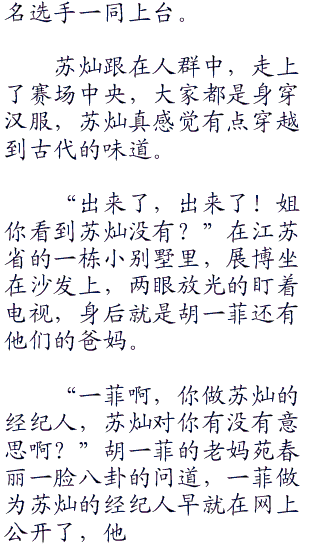 名选手一同上台。
苏灿跟在人群中，走上
了赛场中央，大家都是身穿
汉服，苏灿真感觉有点穿越
到古代的味道。
“出来了，出来了！姐
你看到苏灿没有？”在江苏
省的一栋小别墅里，展博坐
在沙发上，两眼放光的盯着
电视，身后就是胡一菲还有
他们的爸妈。
“一菲啊，你做苏灿的
经纪人，苏灿对你有没有意
思啊？”胡一菲的老妈苑春
丽一脸八卦的问道，一菲做
为苏灿的经纪人早就在网上
公开了，他